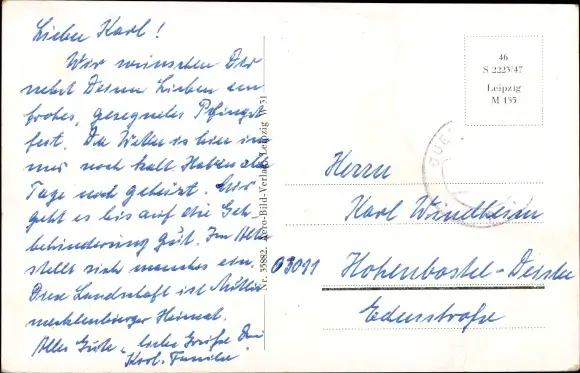 Lieber Karl!
Wir wünschen Dir
nebst Deinen Lieben ein
frohes, gesegnetes Pfingst
fest. Das Wetter is hier im
mer noch kalt. Haben alle
Tage noch geheizt. Mir
geht es bis auf die Geh-
behinderung gut. Im Alter
stellt sich manches ein.
Diese Landschaft ist
mecklenburger Heimat.
Alles Gute, liebe Grüße Dein
Karl. Familie
Nr. 35882. Aero-Bild-Verlag, Leipzig W 31
46
S 2225/47
Leipzig
M 135
Herrn
Karl Windheim
03091 Hohenbostel-Deister
Edenstrasse